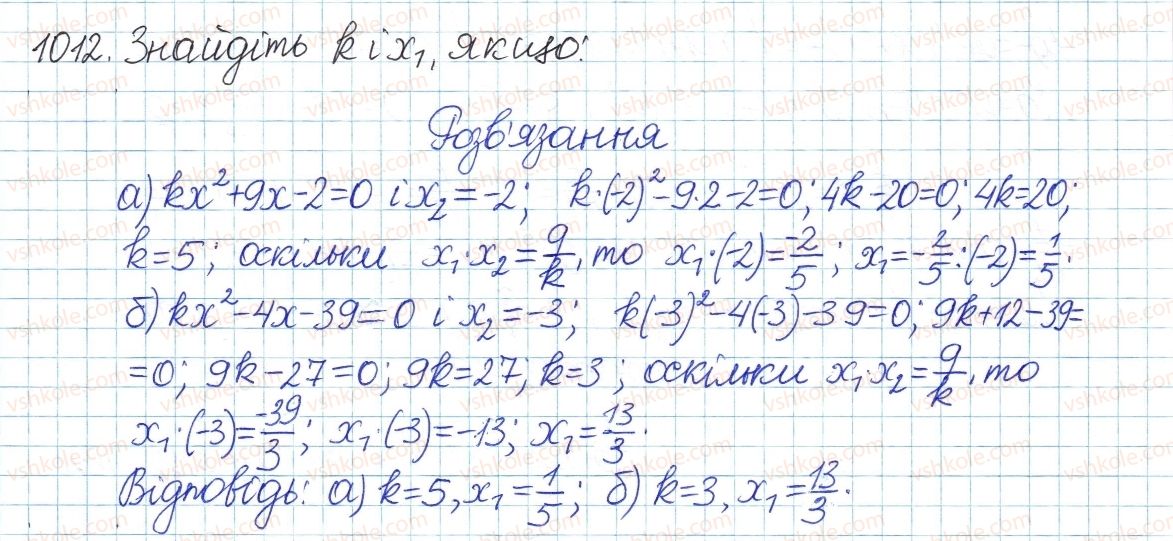 1012. Знайдіть k і x₁, якщо:
Розв'язання
а) kx²+9x-2=0 і x₂=-2; k·(-2)²-9·2-2=0; 4k-20=0; 4k=20;
k=5; оскільки x₁·x₂=q/k, то x₁·(-2)=-2/5; x₁=-2/5:(-2)=1/5.
б) kx²-4x-39=0 і x₂=-3; k(-3)²-4(-3)-39=0; 9k+12-39=
=0; 9k-27=0; 9k=27; k=3; оскільки x₁·x₂=q/k, то
x₁·(-3)=-39/3; x₁·(-3)=-13; x₁=13/3.
Відповідь: а) k=5, x₁=1/5; б) k=3, x₁=13/3.